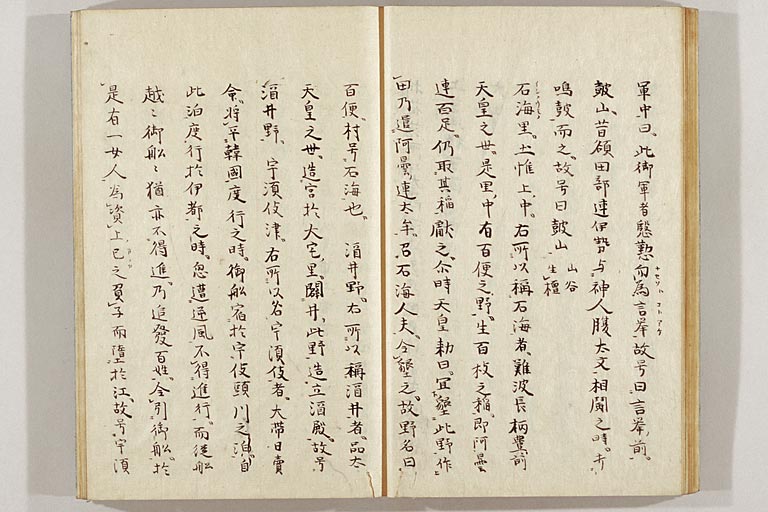 軍中曰。此御軍者慇懃勿為言挙故号曰言挙前。
皷山、昔額田部連伊勢与神人腹太文相闘之時。打
鳴皷而之。故号曰皷山 山谷生檀
石海里。土惟上中。右所以稱石海者、難波長柄豊前
天皇之世。是里中有百便之野。生百枚之稲。即阿曇
連百足。仍取其稲獻之。尒時天皇勅曰。宜墾此野作
田乃遣阿曇連太牟。召石海人夫。令墾之。故野名曰
百便。村号石海也。 湏井野。右所以稱湏井者。品太
天皇之世。造宮於大宅里。闢井此野造立湏殿。故号
湏井野。 宇湏伎津。右所以名宇湏伎者。大帯日賣
命。将平韓國度行之時。御舩宿於宇伎頭川之泊。自
此泊度行於伊都之時。忽遭逆風不得進行。而従舩
越〻御舩〻猶亦不得進。乃追發百姓。令引御舩。於
是有一女人為資上己之真子而墮於江。故号宇湏